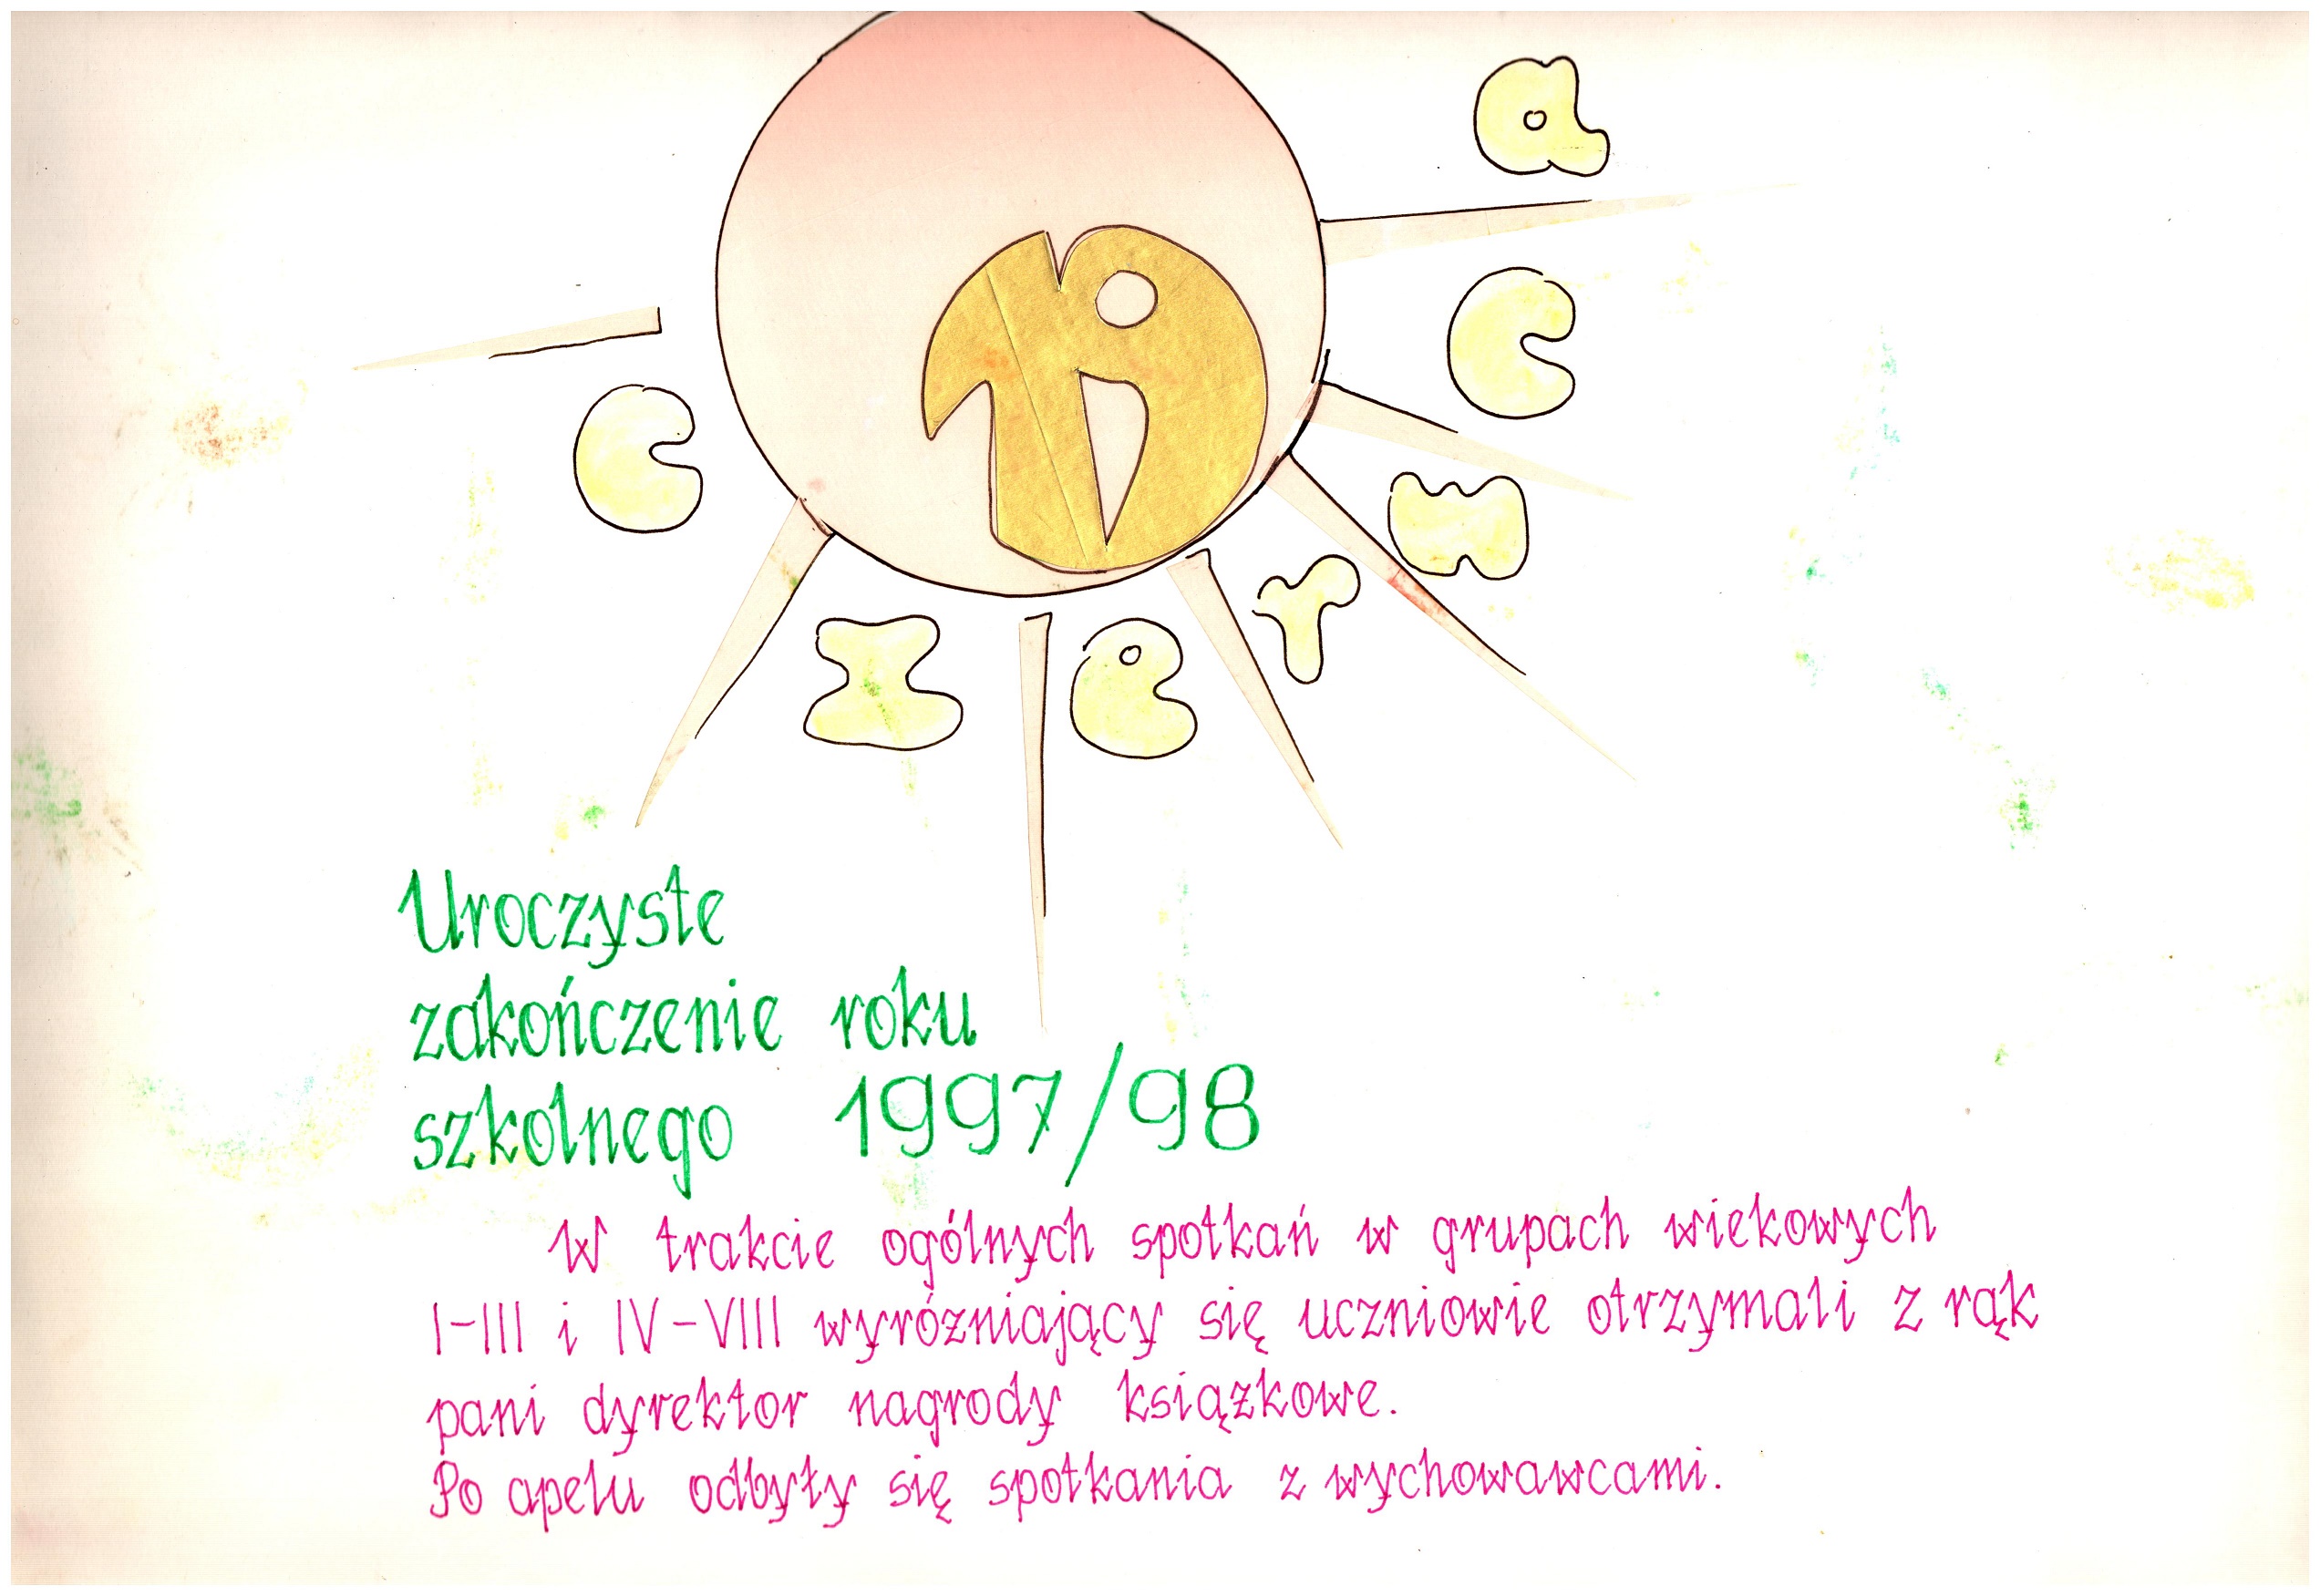 19
czerwca
Uroczyste
zakończenie roku
szkolnego 1997/98
W trakcie ogólnych spotkań w grupach wiekowych
I-III i IV-VIII wyrózniający się uczniowie otrzymali z rąk
pani dyrektor nagrody ksiązkowe.
Po apelu odbyły się spotkania z wychowawcami.